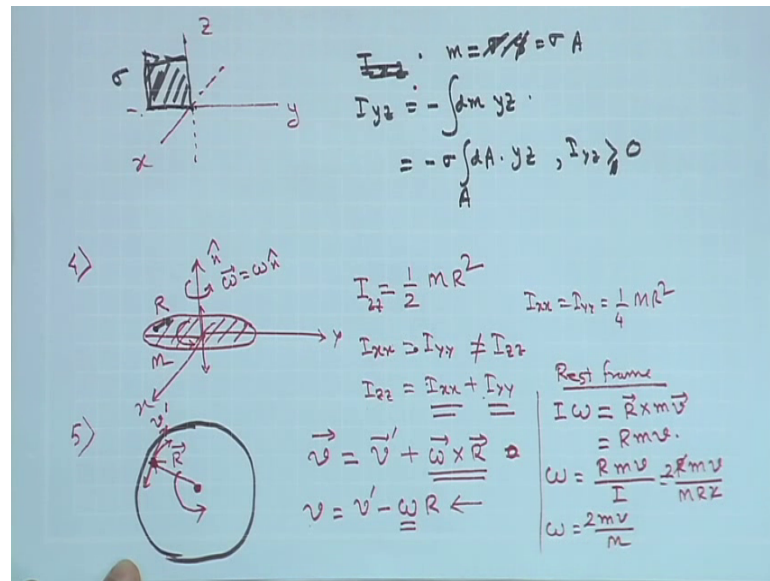 z
σ
y
x
m = = σ A
I_yz = - ∫ dm yz.
= - σ ∫_A dA. yz , I_yz ⩾ 0
4)
n̂
ω⃗ = ω n̂
R
M
y
x
I_zz = 1/2 MR²
I_xx = I_yy = 1/4 MR²
I_xx = I_yy ≠ I_zz
I_zz = I_xx + I_yy
5)
v'
R⃗
v⃗ = v⃗' + ω⃗ × R⃗
v = v' - ωR ←
Rest frame
Iω = R⃗ × m v⃗
= Rmv.
ω = Rmv/I = 2Rmv/MR²
ω = 2mv/M